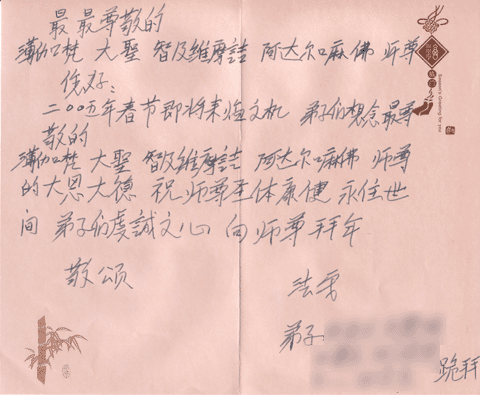 最最尊敬的
薄伽梵 大聖 智及維摩詰 阿达尔嘛佛 师尊
您好：
二〇〇五年春节即将来临之机 弟子们想念最尊
敬的
薄伽梵 大聖 智及維摩詰 阿达尔嘛佛 师尊
的大恩大德 祝师尊圣体康健 永住世
间 弟子们虔誠之心 向师尊拜年
敬颂
法安
弟子
跪拜
Season's Greeting for you